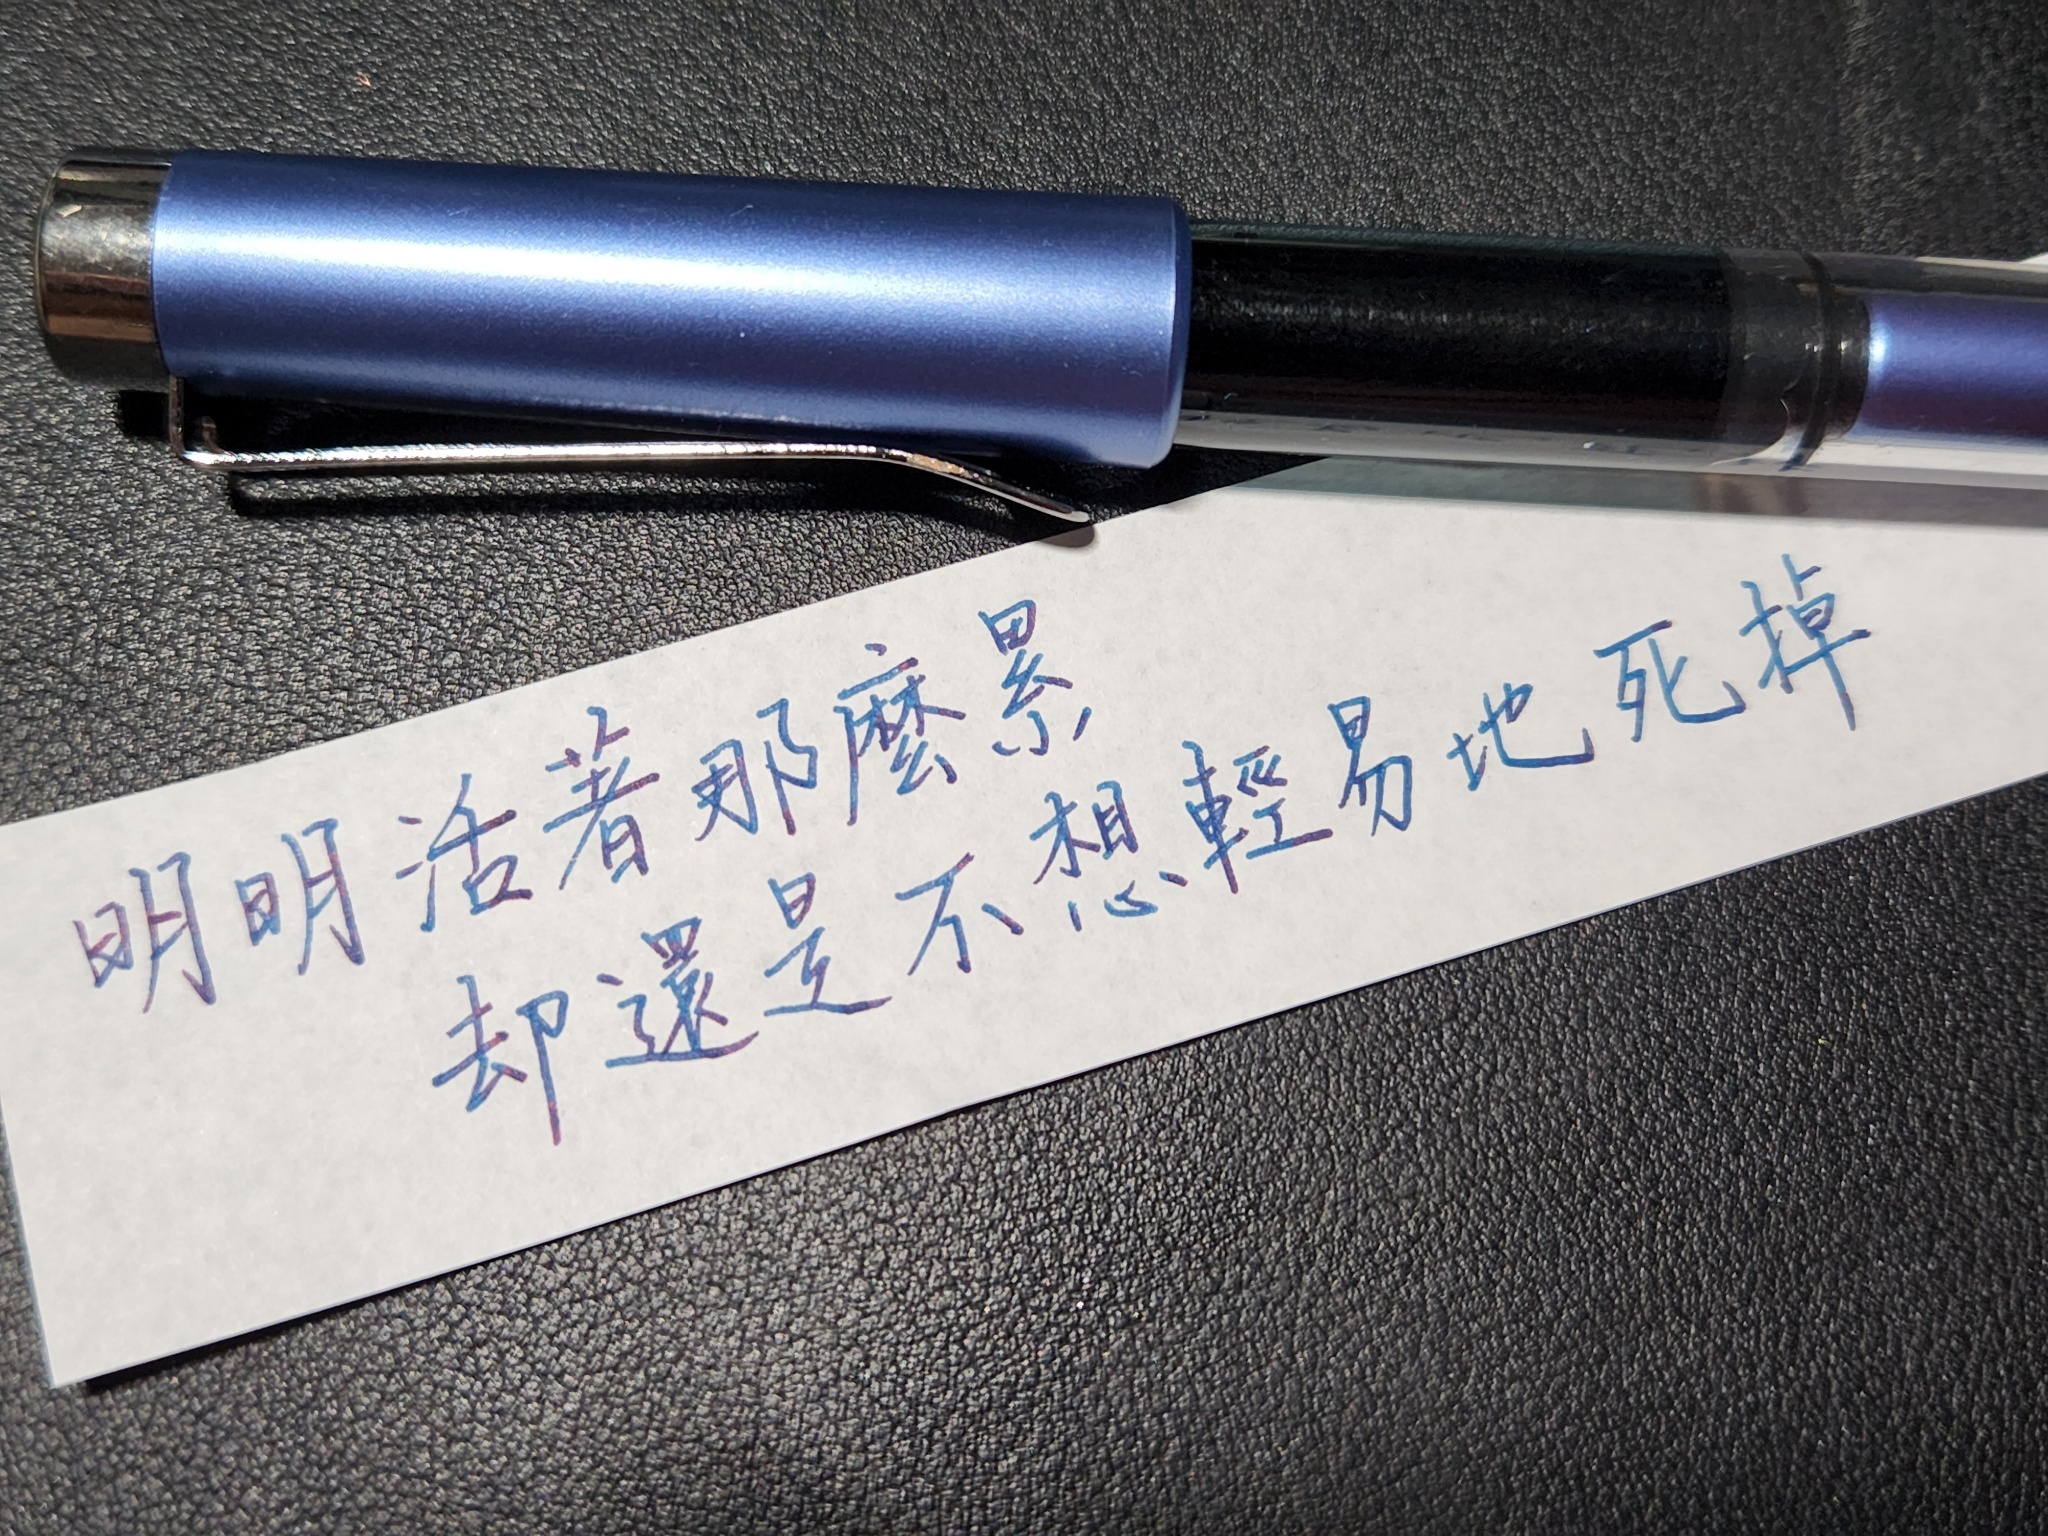 明明活著那麼累
却還是不想輕易地死掉